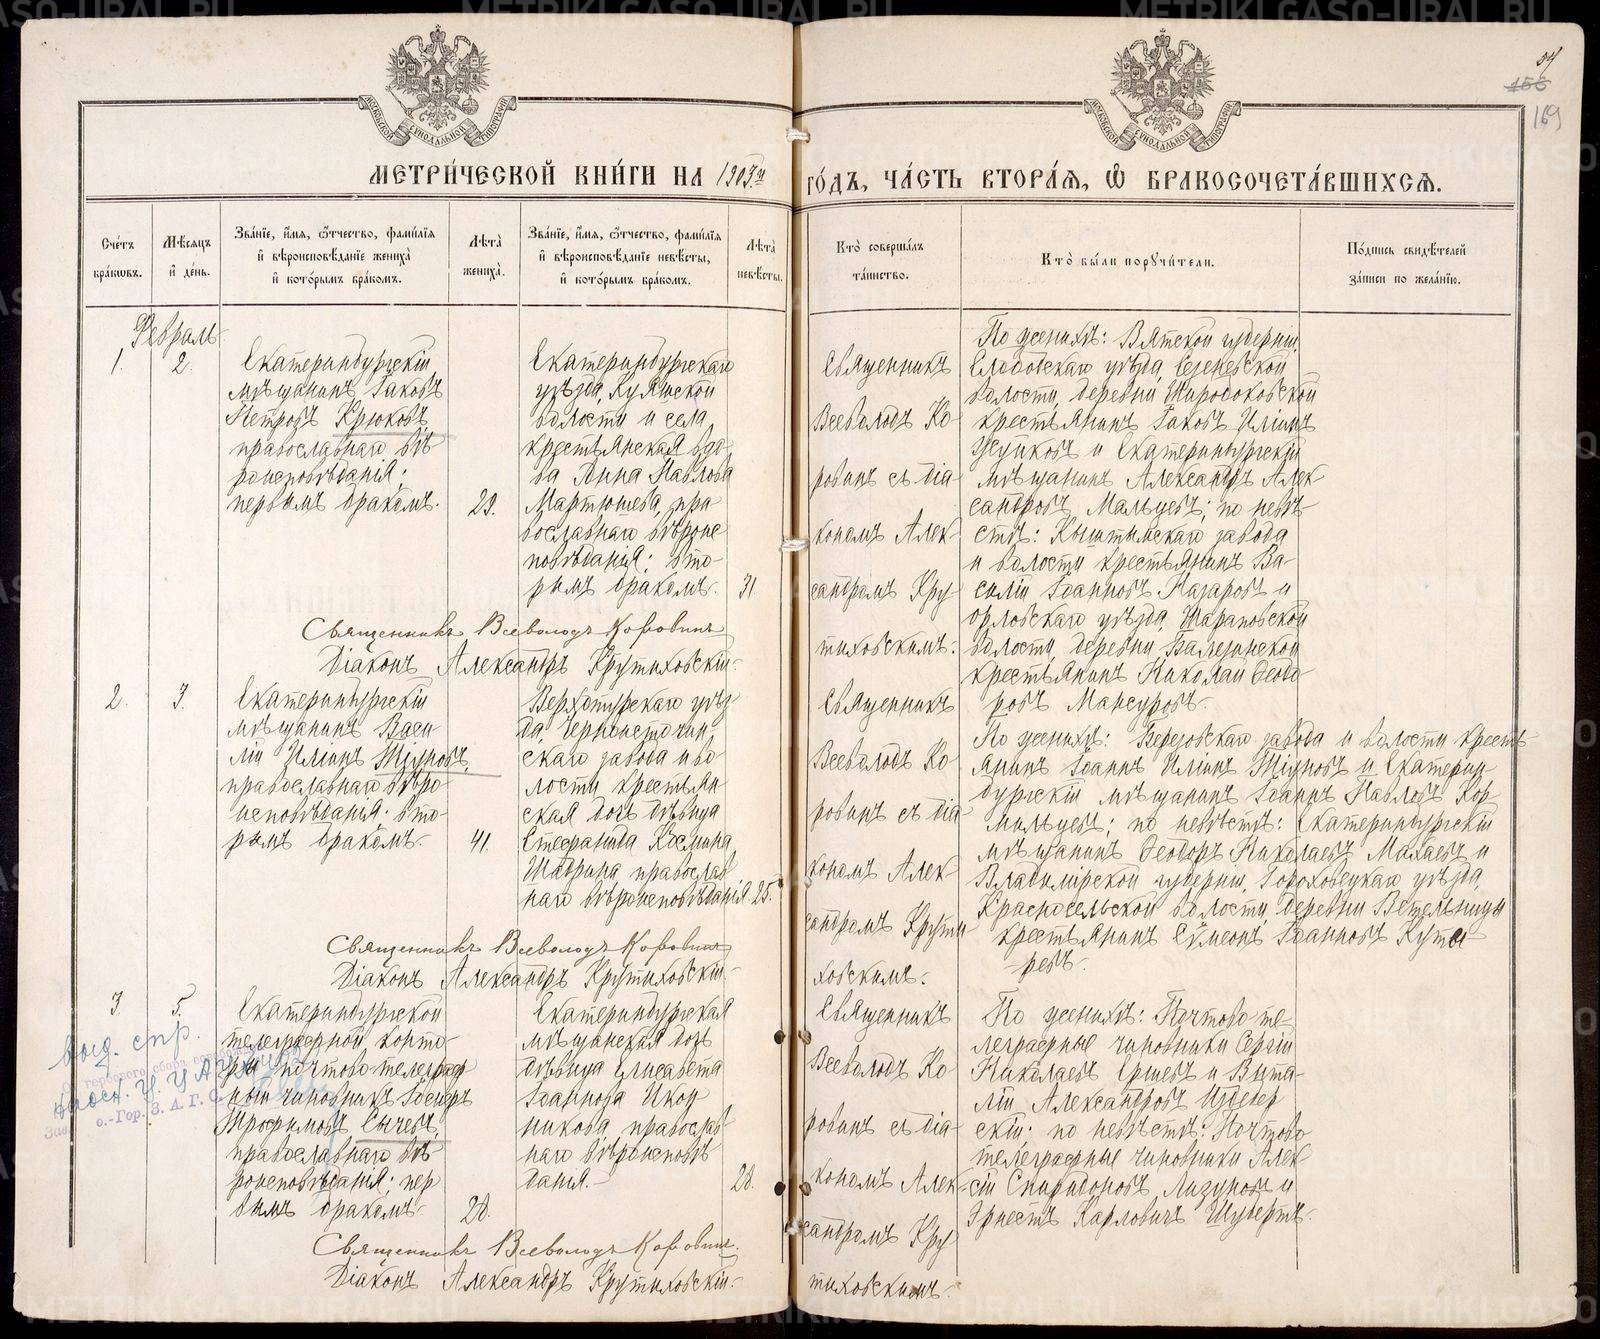 МЕТРИЧЕСКОЙ КНИГИ НА 1903й ГОДЪ, ЧАСТЬ ВТОРАЯ, Ѡ БРАКОСОЧЕТАВШИХСЯ.
169
Счетъ браковъ.
Мѣсяцъ и день.
Званіе, имя, ѿчество, фамилія и вѣроисповѣданіе жениха и которымъ бракомъ.
Лѣта жениха.
Званіе, имя, ѿчество, фамилія и вѣроисповѣданіе невѣсты, и которымъ бракомъ.
Лѣта невѣсты.
Кто совершалъ таинство.
Кто были поручители.
Подпись свидѣтелей записи по желанію.
Февраль
1.
2.
Екатеринбургскій
мѣщанинъ Іаковъ
Петровъ Крюковъ,
православнаго вѣ
роисповѣданія;
первымъ бракомъ.
29.
Екатеринбургскаго
уѣзда, Куяшской
волости и села
крестьянская вдо
ва Анна Павлова
Мартюшева, пра
вославнаго вѣроис
повѣданія; вто
рымъ бракомъ.
31.
Священникъ
Всеволодъ Ко
ровинъ съ діа
кономъ Алек
сандромъ Кру
тиховскимъ.
По женихѣ: Вятской губерніи,
Слободскаго уѣзда,
волости, деревни
крестьянинъ Іаковъ Иліинъ
и Екатеринбургскій
мѣщанинъ Александръ Алек
сандровъ Мальцевъ; по невѣ
стѣ: Кыштымскаго завода
и волости крестьянинъ Ва
силій Іоанновъ Назаровъ и
Орловскаго уѣзда,
волости, деревни
крестьянинъ Николай Ѳеодо
ровъ Мансуровъ.
Священникъ Всеволодъ Коровинъ
Діаконъ Александръ Крутиховскій
2.
3.
Екатеринбургскій
мѣщанинъ Васи
лій Иліинъ Тіуновъ,
православнаго вѣро
исповѣданія; вто
рымъ бракомъ.
41.
Верхотурскаго уѣз
да, Черноисточин
скаго завода и во
лости крестьян
ская дочь дѣвица
Стефанида Косьмина
Шабрина, православ
наго вѣроисповѣданія
25.
Священникъ
Всеволодъ Ко
ровинъ съ діа
кономъ Алек
сандромъ Крути
ховскимъ.
По женихѣ: Березовскаго завода и волости кресть
янинъ Іоаннъ Иліинъ Тіуновъ и Екатерин
бургскій мѣщанинъ Іоаннъ Павловъ Кор
мильцевъ; по невѣстѣ: Екатеринбургскій
мѣщанинъ Ѳеодоръ Николаевъ и
Владимірской губерніи, Гороховецкаго уѣзда,
Красносельской волости, деревни
крестьянинъ Симеонъ Іоанновъ
Священникъ Всеволодъ Коровинъ
Діаконъ Александръ Крутиховскій
3.
5.
Екатеринбургской
телеграфной конто
ры почтово-телеграф
ный чиновникъ
Трофимовъ Сычевъ,
православнаго вѣ
роисповѣданія; пер
вымъ бракомъ.
28.
Екатеринбургская
мѣщанская дочь
дѣвица Елисавета
Іоаннова Икон
никова, православ
наго вѣроисповѣ
данія.
28.
Священникъ
Всеволодъ Ко
ровинъ съ діа
кономъ Алек
сандромъ Кру
тиховскимъ.
По женихѣ: Почтово-те
леграфные чиновники Сергій
Николаевъ Ершевъ и Вита
лій Александровъ
скій; по невѣстѣ: Почтово
телеграфные чиновники Алек
сій Спиридоновъ Лизуновъ и
Эрнестъ Карловичъ Шубертъ.
Священникъ Всеволодъ Коровинъ.
Діаконъ Александръ Крутиховскій
выд. спр.
METRIKI.GASO-URAL.RU